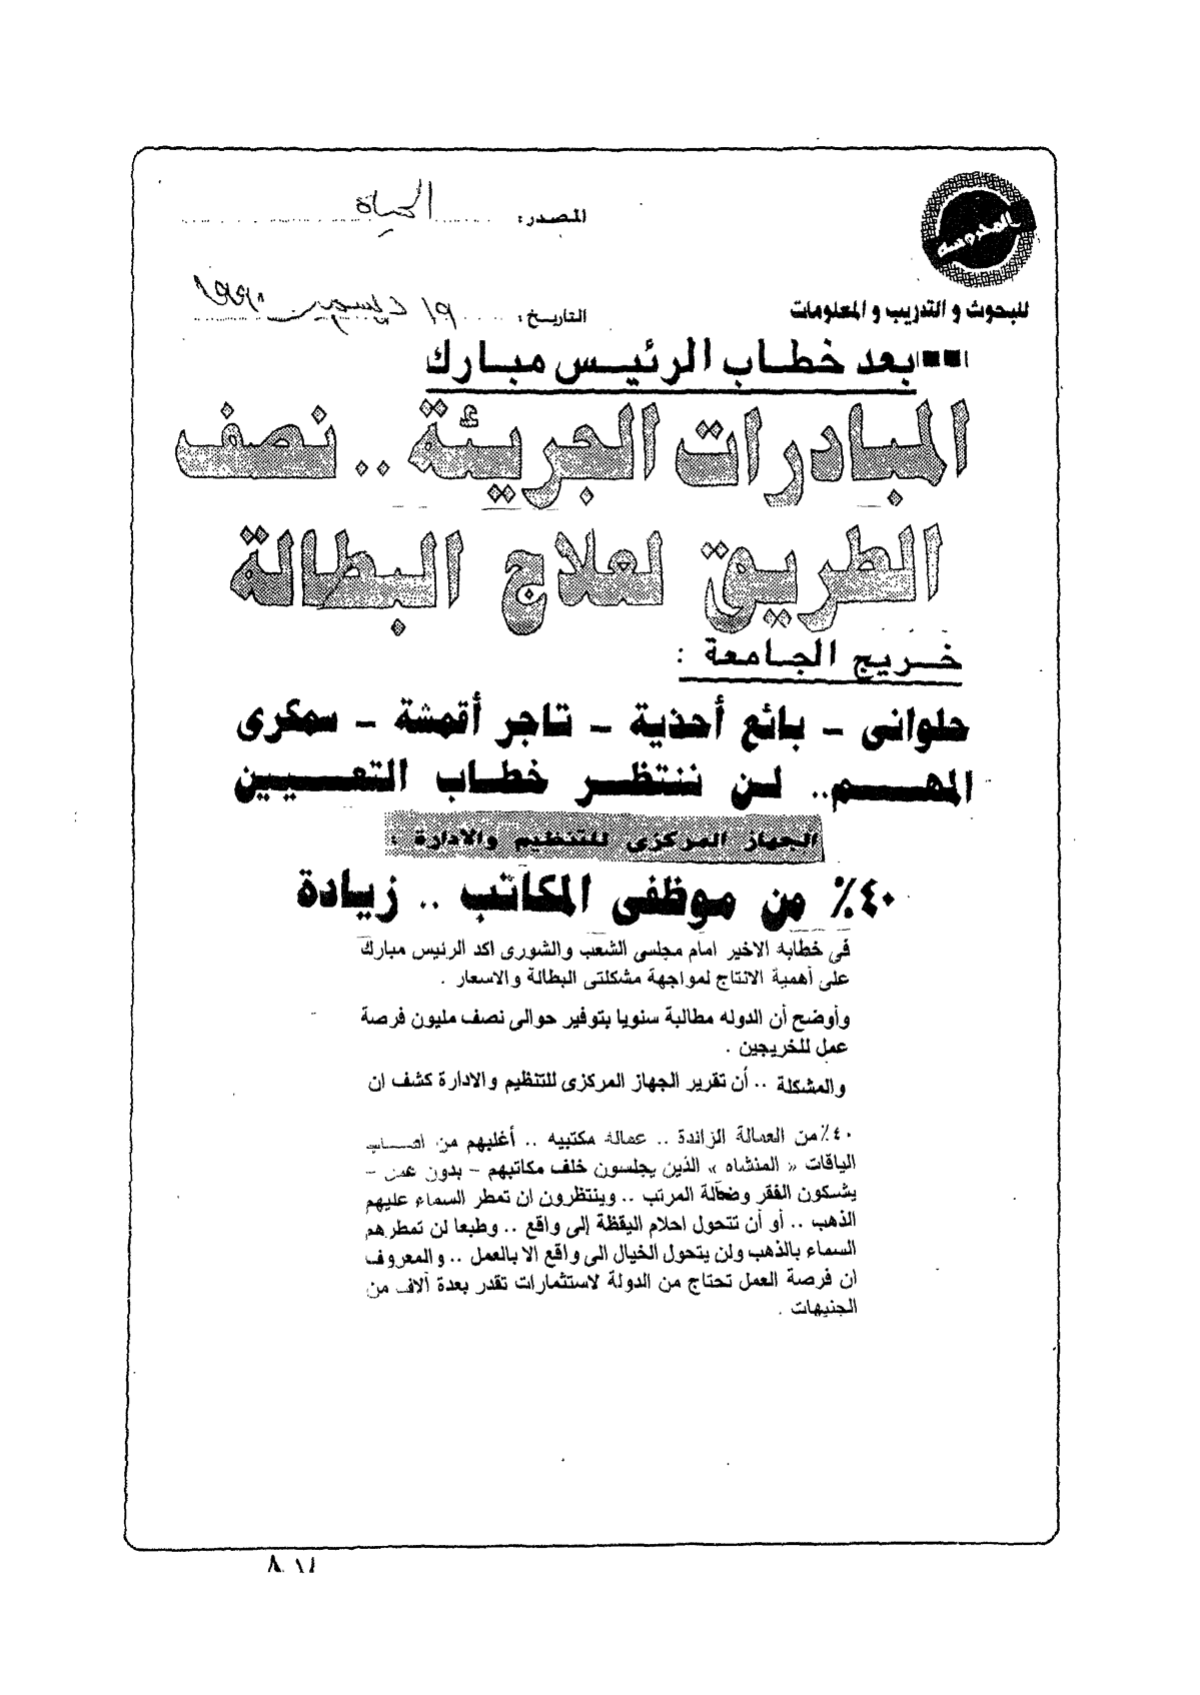 المحروسة
المصدر: الحياة
للبحوث و التدريب و المعلومات
التاريخ: ١٩ ديسمبر
بعد خطاب الرئيس مبارك
المبادرات الجريئة .. نصف
الطريق لعلاج البطالة
خريج الجامعة :
حلوانى - بائع أحذية - تاجر أقمشة - سمكرى
المهم.. لن ننتظر خطاب التعيين
الجهاز المركزى للتنظيم والادارة :
٤٠٪ من موظفى المكاتب .. زيادة
فى خطابه الاخير امام مجلسى الشعب والشورى اكد الرئيس مبارك
على أهمية الانتاج لمواجهة مشكلتى البطالة والاسعار .
وأوضح أن الدوله مطالبة سنويا بتوفير حوالى نصف مليون فرصة
عمل للخريجين .
والمشكلة .. أن تقرير الجهاز المركزى للتنظيم والادارة كشف ان
٤٠٪ من العمالة الزائدة .. عمالة مكتبيه .. أغلبهم من اصحاب
الياقات « المنشاه » الذين يجلسون خلف مكاتبهم - بدون عمل -
يشكون الفقر وضآلة المرتب .. وينتظرون ان تمطر السماء عليهم
الذهب .. أو أن تتحول احلام اليقظة إلى واقع .. وطبعا لن تمطرهم
السماء بالذهب ولن يتحول الخيال الى واقع الا بالعمل .. والمعروف
ان فرصة العمل تحتاج من الدولة لاستثمارات تقدر بعدة آلاف من
الجنيهات .